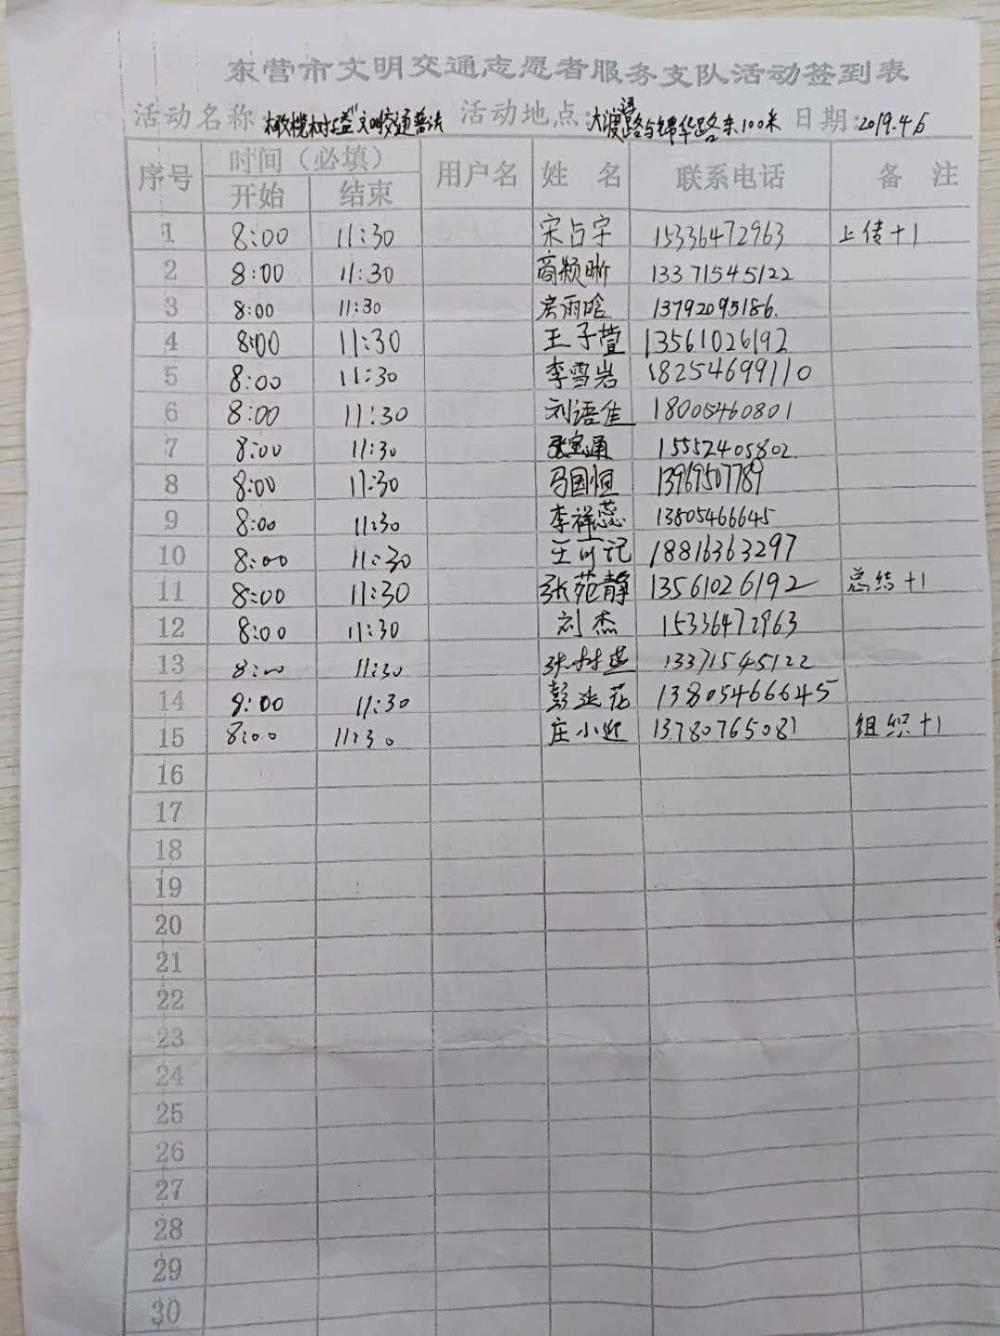 东营市文明交通志愿者服务支队活动签到表
活动名称 橄榄树公益"文明交通普法 活动地点: 大渡河路与锦华路东100米 日期: 2019.4.6
序号 时间（必填） 用户名 姓 名 联系电话 备 注
开始 结束
1 8:00 11:30 宋占宇 15336472963 上传+1
2 8:00 11:30 商颖晰 13371545122
3 8:00 11:30 房雨晗 13792095186.
4 8:00 11:30 王子萱 13561026192
5 8:00 11:30 李雪岩 18254699110
6 8:00 11:30 刘语佳 18005460801
7 8:00 11:30 张宝通 15552405802.
8 8:00 11:30 马国恒 13969507789
9 8:00 11:30 李祥蕊 13805466645
10 8:00 11:30 王可记 18816363297
11 8:00 11:30 张苑静 13561026192 总结+1
12 8:00 11:30 刘杰 15336472963
13 8:00 11:30 张 13371545122
14 8:00 11:30 彭 花 13805466645
15 8:00 11:30 庄小 13780765081 组织+1
16
17
18
19
20
21
22
23
24
25
26
27
28
29
30